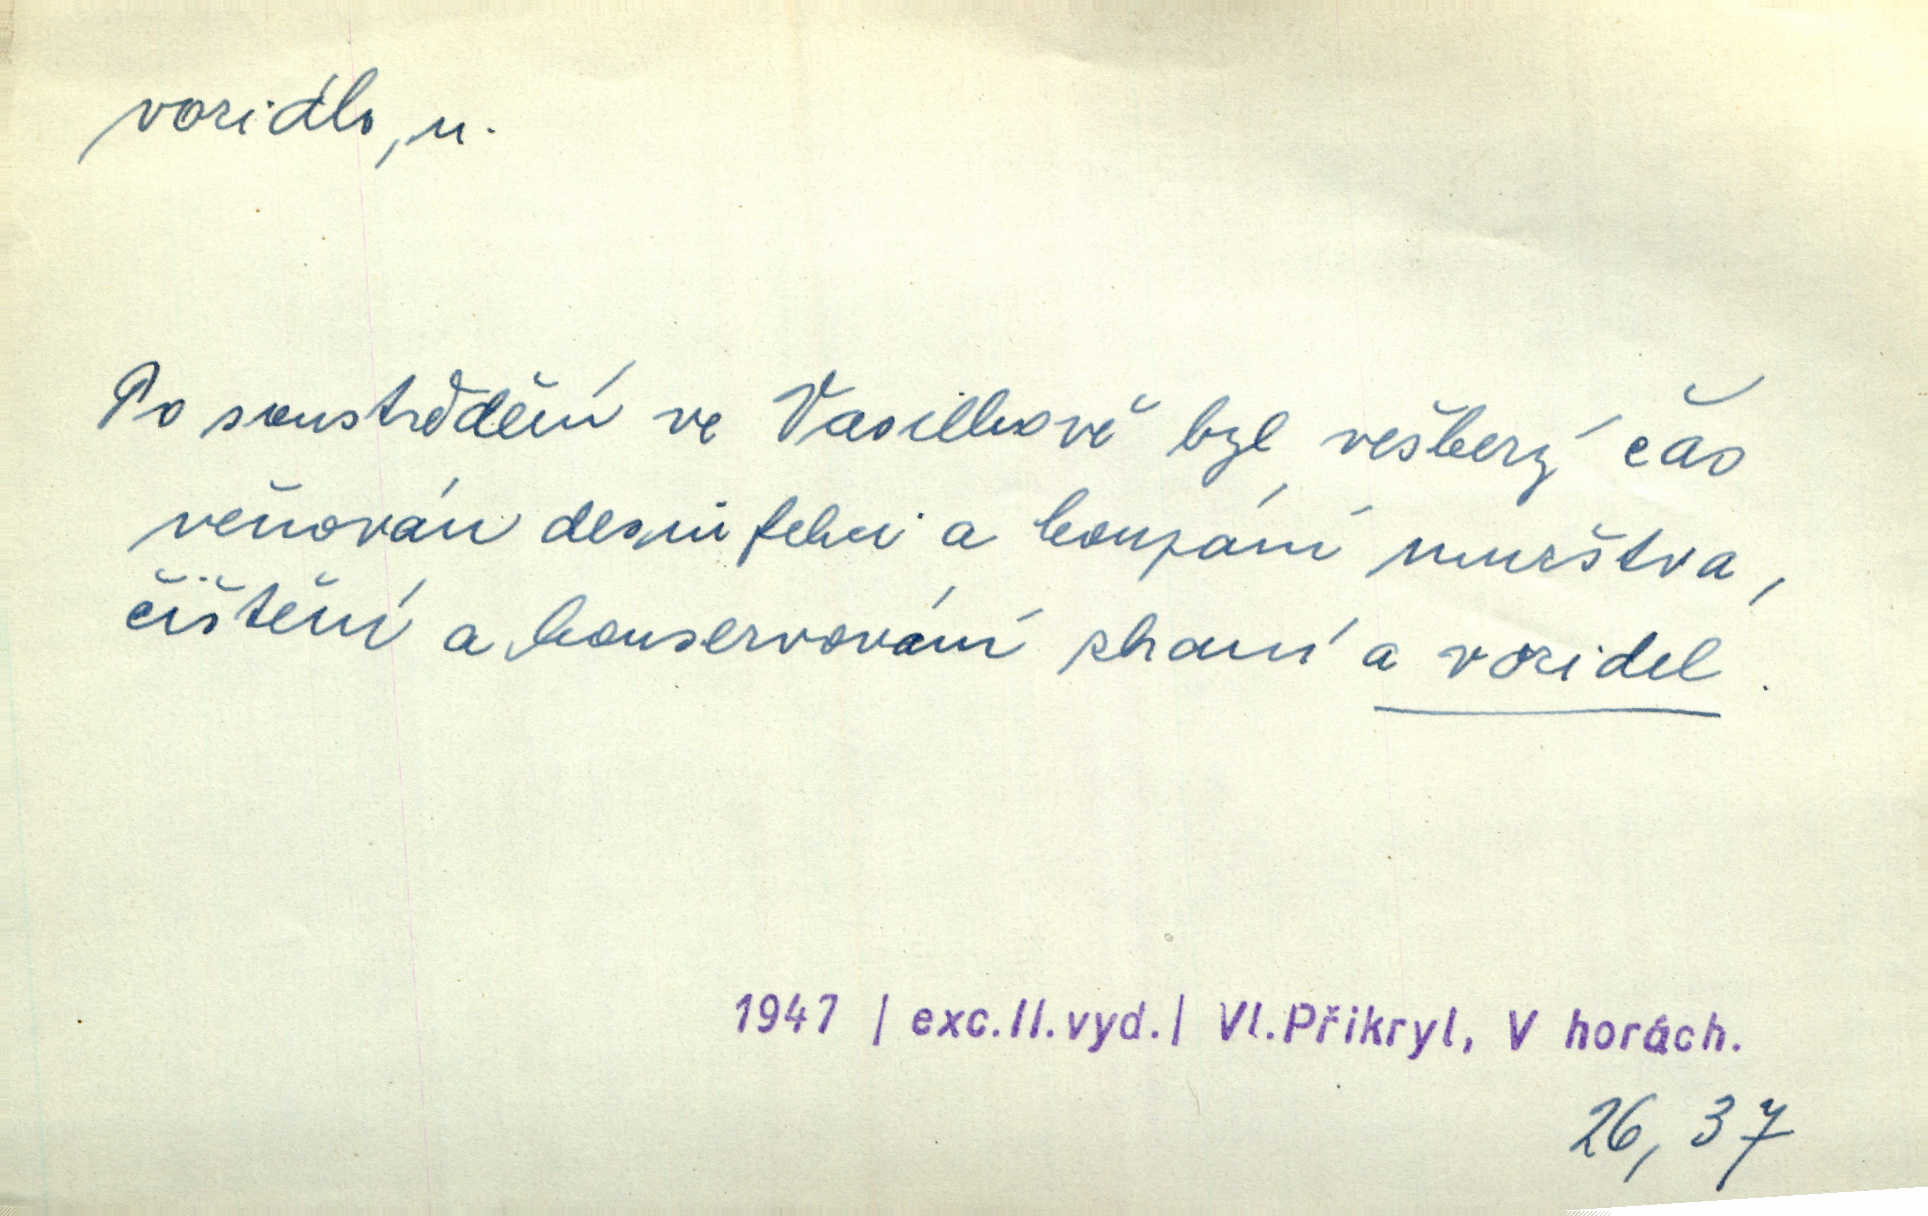 vozidlo, n.
Po soustředění ve Vasilkově byl veškerý čas
věnován desinfekci a koupání mužstva,
čištění a konservování zbraní a vozidel.
1947 / exc.II.vyd./ Vl.Přikryl, V horách.
26, 37